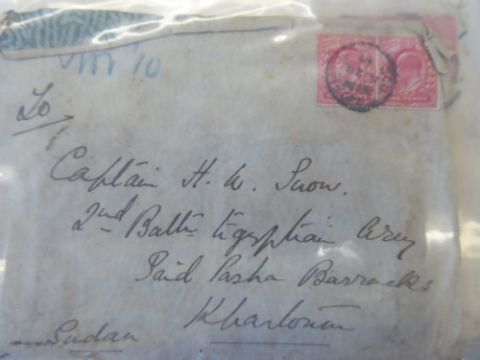 To
Captain H. W. Snow.
2nd Battn Egyptian Army
Said Pasha Barracks
Khartoum
Sudan